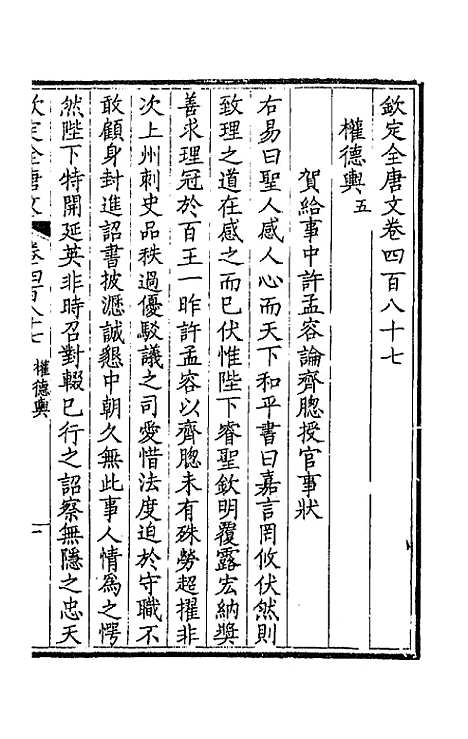 欽定全唐文卷四百八十七
權德輿五
賀給事中許孟容論齊總授官事狀
右易曰聖人感人心而天下和平書曰嘉言罔攸伏然則
致理之道在感之而已伏惟陛下睿聖欽明覆露宏納奬
善求理冠於百王一昨許孟容以齊總未有殊勞超擢非
次上州刺史品秩過優駁議之司愛惜法度迫於守職不
敢顧身封進詔書披瀝誠懇中朝久無此事人情為之愕
然陛下特開延英非時召對輟已行之詔察無隱之忠天
欽定全唐文 卷四百八十七 權德輿 一